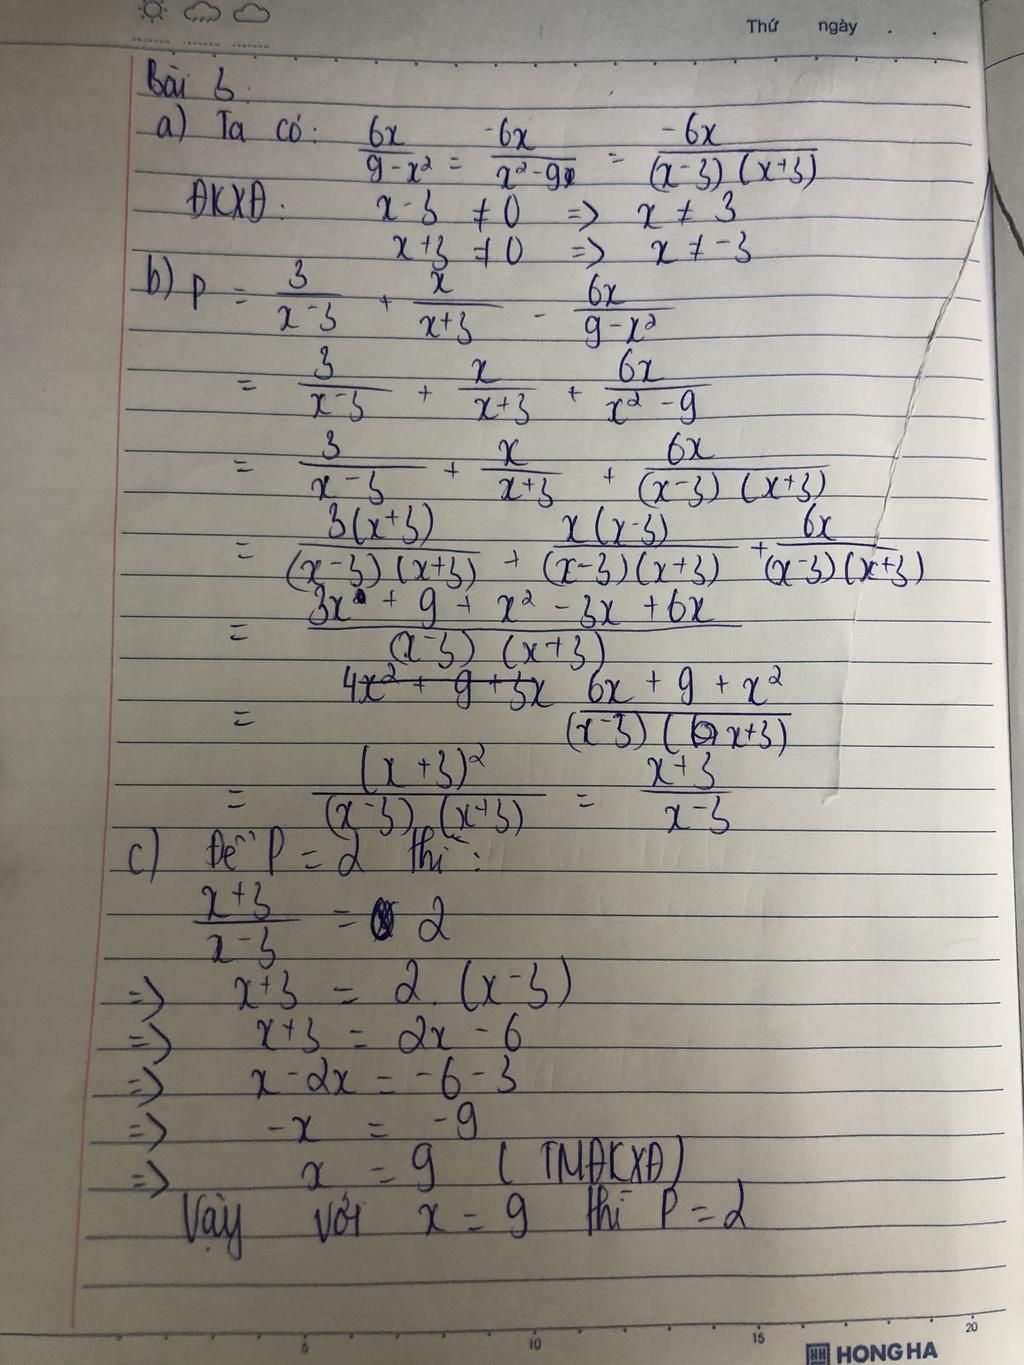 Thứ ngày . .
Bài 3.
a) Ta có: 6x/(9-x²) = -6x/(x²-9) = -6x/((x-3)(x+3))
ĐKXĐ: x-3 ≠ 0 => x ≠ 3
x+3 ≠ 0 => x ≠ -3
b) P = 3/(x-3) + x/(x+3) - 6x/(9-x²)
= 3/(x-3) + x/(x+3) + 6x/(x²-9)
= 3/(x-3) + x/(x+3) + 6x/((x-3)(x+3))
= 3(x+3)/((x-3)(x+3)) + x(x-3)/((x-3)(x+3)) + 6x/((x-3)(x+3))
= (3x + 9 + x² - 3x + 6x)/((x-3)(x+3))
= 4x² + 9 + 3x (6x + 9 + x²)/((x-3)(x+3))
= (x+3)²/((x-3)(x+3)) = (x+3)/(x-3)
c) Để P = 2 thì:
(x+3)/(x-3) = 2
=> x+3 = 2.(x-3)
=> x+3 = 2x-6
=> x-2x = -6-3
=> -x = -9
=> x = 9 (TMĐKXĐ)
Vậy với x = 9 thì P = 2
5 10 15 20
HH HONG HA